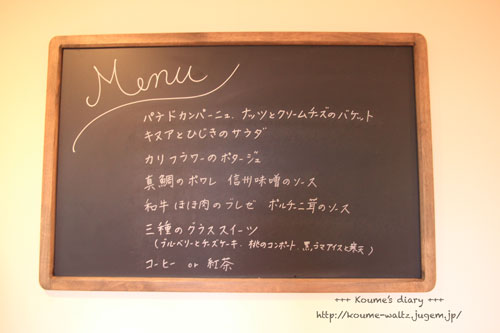 Menu
パテドカンパーニュ、ナッツとクリームチーズのバゲット
キヌアとひじきのサラダ
カリフラワーのポタージュ
真鯛のポワレ 信州味噌のソース
和牛ほほ肉のブレゼ ポルチーニ茸のソース
三種のグラススイーツ
(ブルーベリーとチーズケーキ、桃のコンポート、黒ゴマアイスと寒天)
コーヒー or 紅茶
+++ Koume's diary +++
http://koume-waltz.jugem.jp/